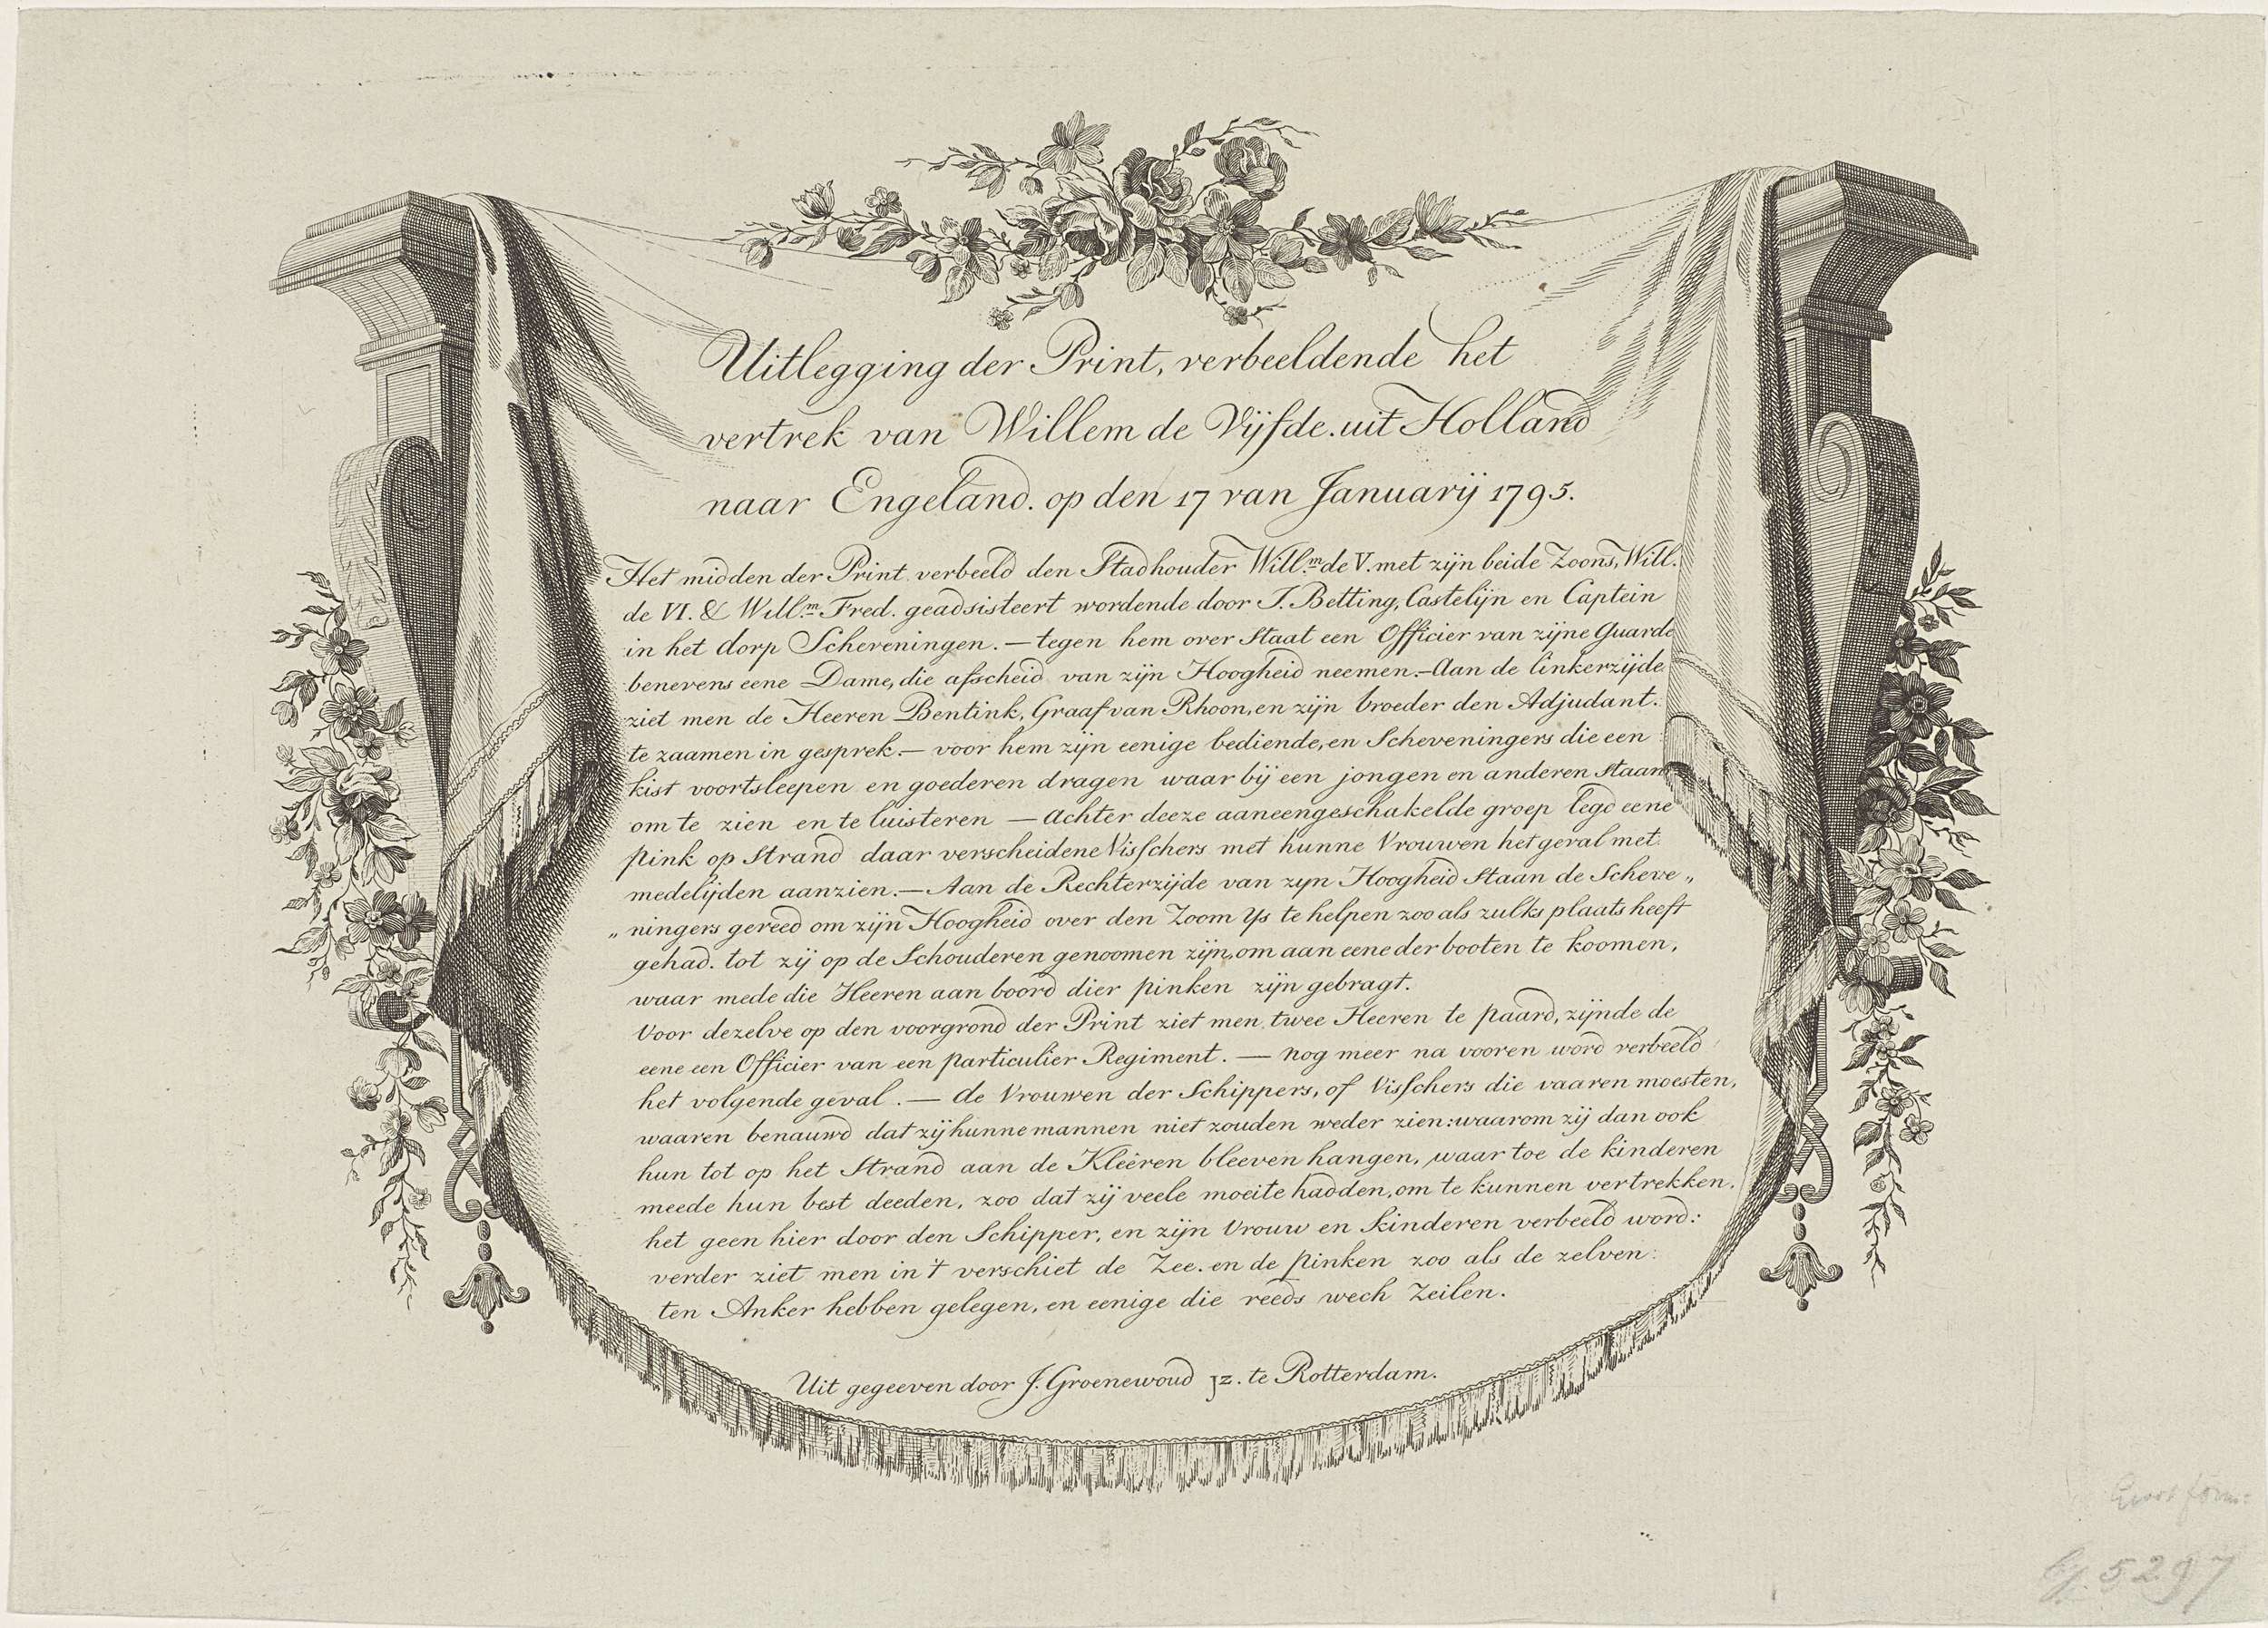 Uitlegging der Print, verbeeldende het
vertrek van Willem de Vijfde. uit Holland
naar Engeland. op den 17 van Januarij 1795.
Het midden der Print verbeeld den Stadhouder Will.m de V. met zijn beide Zoons, Will.
de VI. & Will.m Fred. geadsisteert wordende door J. Betting, Castelijn en Captein
in het dorp Scheveningen. — tegen hem over Staat een Officier van zijne Guarde
benevens eene Dame, die afscheid van zijn Hoogheid neemen. — Aan de linkerzijde
ziet men de Heeren Bentink, Graaf van Rhoon, en zijn broeder den Adjudant.
te zaamen in gesprek. — voor hem zijn eenige bediende, en Scheveningers die een
kist voortsleepen en goederen dragen waar bij een jongen en anderen Staan
om te zien en te luisteren — Achter deeze aaneengeschakelde groep legd eene
pink op Strand daar verscheidene Visschers met hunne Vrouwen het geval met
medelijden aanzien. — Aan de Rechterzijde van zyn Hoogheid Staan de Scheve„
„ningers gereed om zijn Hoogheid over den Zoom Ys te helpen zoo als zulks plaats heeft
gehad. tot zij op de Schouderen genoomen zijn, om aan eene der booten te koomen,
waar mede die Heeren aan boord dier pinken zijn gebragt.
Voor dezelve op den voorgrond der Print ziet men twee Heeren te paard, zijnde de
eene een Officier van een particulier Regiment. — nog meer na vooren word verbeeld
het volgende geval. — de Vrouwen der Schippers, of Visschers die vaaren moesten,
waaren benauwd dat zij hunne mannen niet zouden weder zien: waarom zij dan ook
hun tot op het Strand aan de Kleêren bleeven hangen, waar toe de kinderen
meede hun best deeden, zoo dat zij veele moeite hadden, om te kunnen vertrekken.
het geen hier door den Schipper, en zijn Vrouw en kinderen verbeeld word:
verder ziet men in 't verschiet de Zee. en de pinken zoo als de zelven
ten Anker hebben gelegen, en eenige die reeds wech Zeilen.
Uit gegeeven door J. Groenewoud Jz. te Rotterdam.
5297